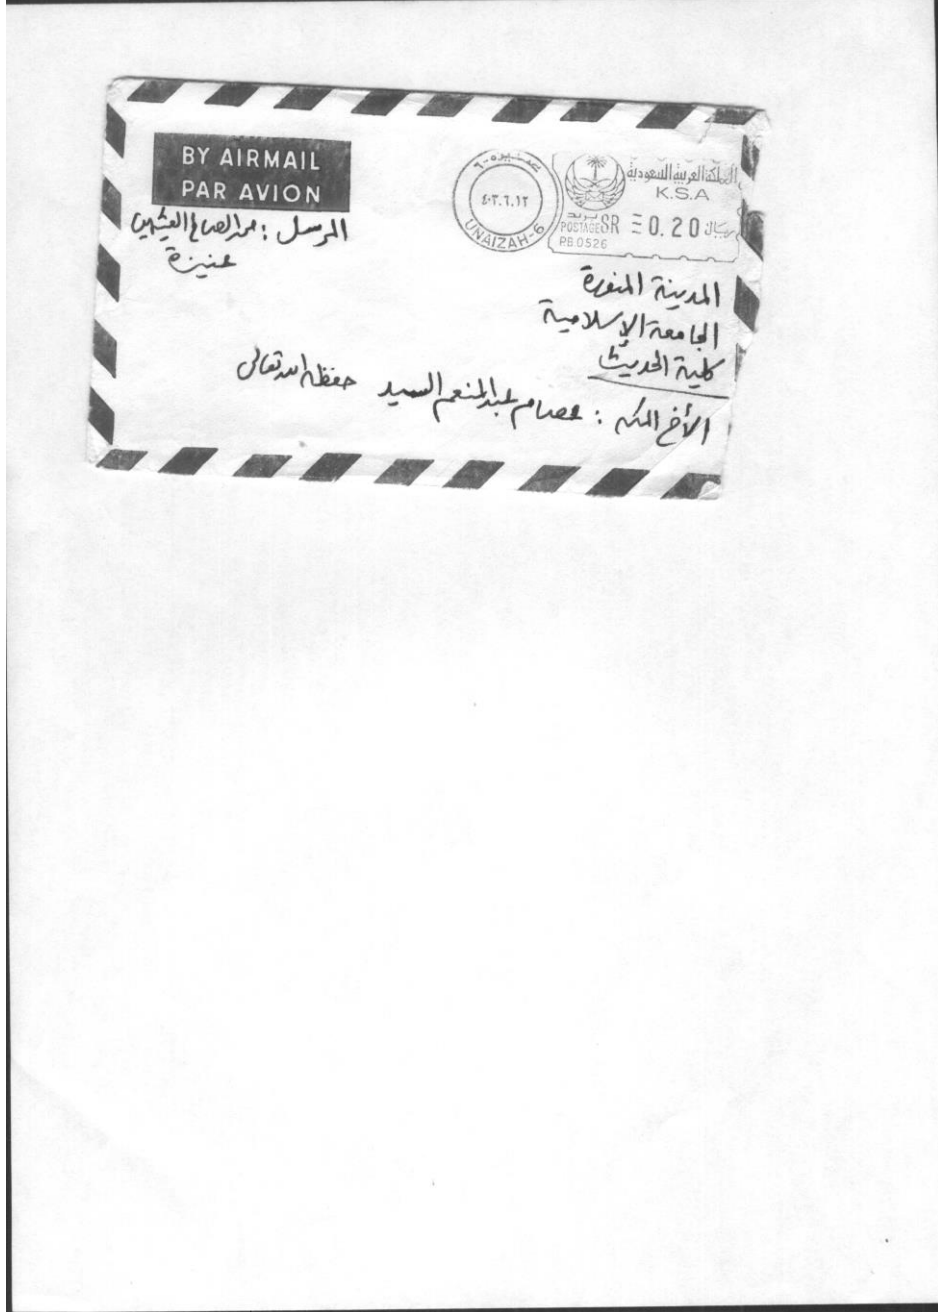 BY AIRMAIL
PAR AVION
المرسل : محمد الصالح العثيمين
عنيزة
عنيزه-٦
٤٠٣.٦.١٢
UNAIZAH-6
المملكة العربية السعودية
K.S.A
بريد
POSTAGE SR 0.20 ريال
PB.0526
المدينة المنورة
الجامعة الإسلامية
كلية الحديث
الأخ المكرم : عصام عبدالمنعم السيد حفظه الله تعالى